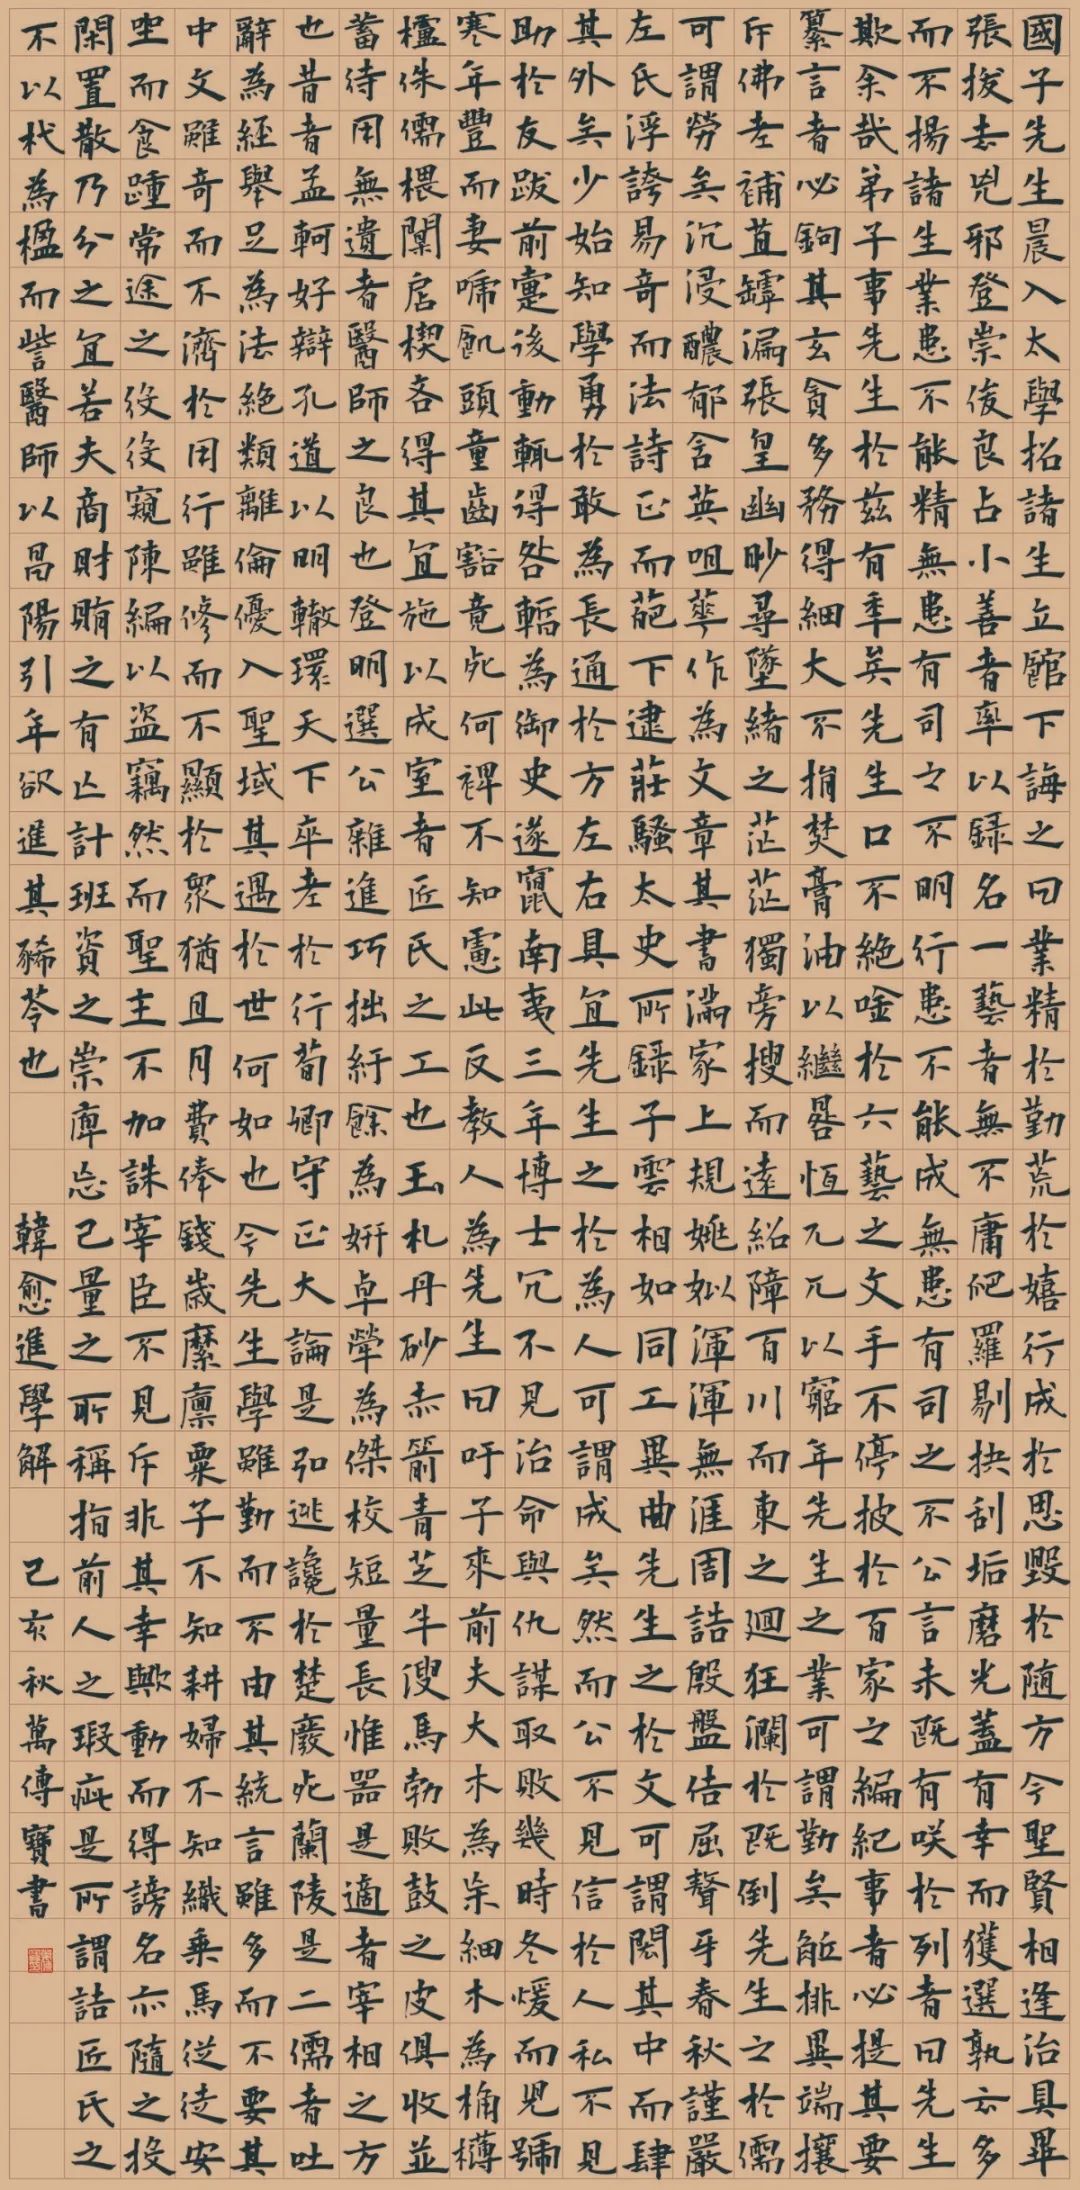 國子先生晨入太學招諸生立館下誨之曰業精於勤荒於嬉行成於思毀於隨方今聖賢相逢治具畢
張拔去兇邪登崇俊良占小善者率以錄名一藝者無不庸爬羅剔抉刮垢磨光蓋有幸而獲選孰云多
而不揚諸生業患不能精無患有司之不明行患不能成無患有司之不公言未既有咲於列者曰先生
欺余哉弟子事先生於茲有季矣先生口不絕唫於六藝之文手不停披於百家之編紀事者必提其要
纂言者必鉤其玄貪多務得細大不捐焚膏油以繼晷恆兀兀以窮年先生之業可謂勤矣觝排異端攘
斥佛老補苴罅漏張皇幽眇尋墜緒之茫茫獨旁搜而遠紹障百川而東之迴狂瀾於既倒先生之於儒
可謂勞矣沉浸醲郁含英咀華作為文章其書滿家上規姚姒渾渾無涯周誥殷盤佶屈聱牙春秋謹嚴
左氏浮誇易奇而法詩正而葩下逮莊騷太史所錄子雲相如同工異曲先生之於文可謂閎其中而肆
其外矣少始知學勇於敢為長通於方左右具宜先生之於為人可謂成矣然而公不見信於人私不見
助於友跋前疐後動輒得咎暫為御史遂竄南夷三年博士冗不見治命與仇謀取敗幾時冬煖而兒號
寒年豐而妻啼飢頭童齒豁竟死何裨不知慮此反教人為先生曰吁子來前夫大木為杗細木為桷欂
櫨侏儒椳闑扂楔各得其宜施以成室者匠氏之工也玉札丹砂赤箭青芝牛溲馬勃敗鼓之皮俱收並
蓄待用無遺者醫師之良也登明選公雜進巧拙紆餘為妍卓犖為傑校短量長惟器是適者宰相之方
也昔者孟軻好辯孔道以明轍環天下卒老於行荀卿守正大論是弘逃讒於楚廢死蘭陵是二儒者吐
辭為經舉足為法絕類離倫優入聖域其遇於世何如也今先生學雖勤而不由其統言雖多而不要其
中文雖奇而不濟於用行雖修而不顯於眾猶且月費俸錢歲縻廩粟子不知耕婦不知織乘馬從徒安
坐而食踵常途之役役窺陳編以盜竊然而聖主不加誅宰臣不見斥非其幸歟動而得謗名亦隨之投
閑置散乃分之宜若夫商財賄之有亡計班資之崇庳忘己量之所稱指前人之瑕疵是所謂詰匠氏之
不以杙為楹而訾醫師以昌陽引年欲進其豨苓也 韓愈進學解 己亥秋萬傳寶書